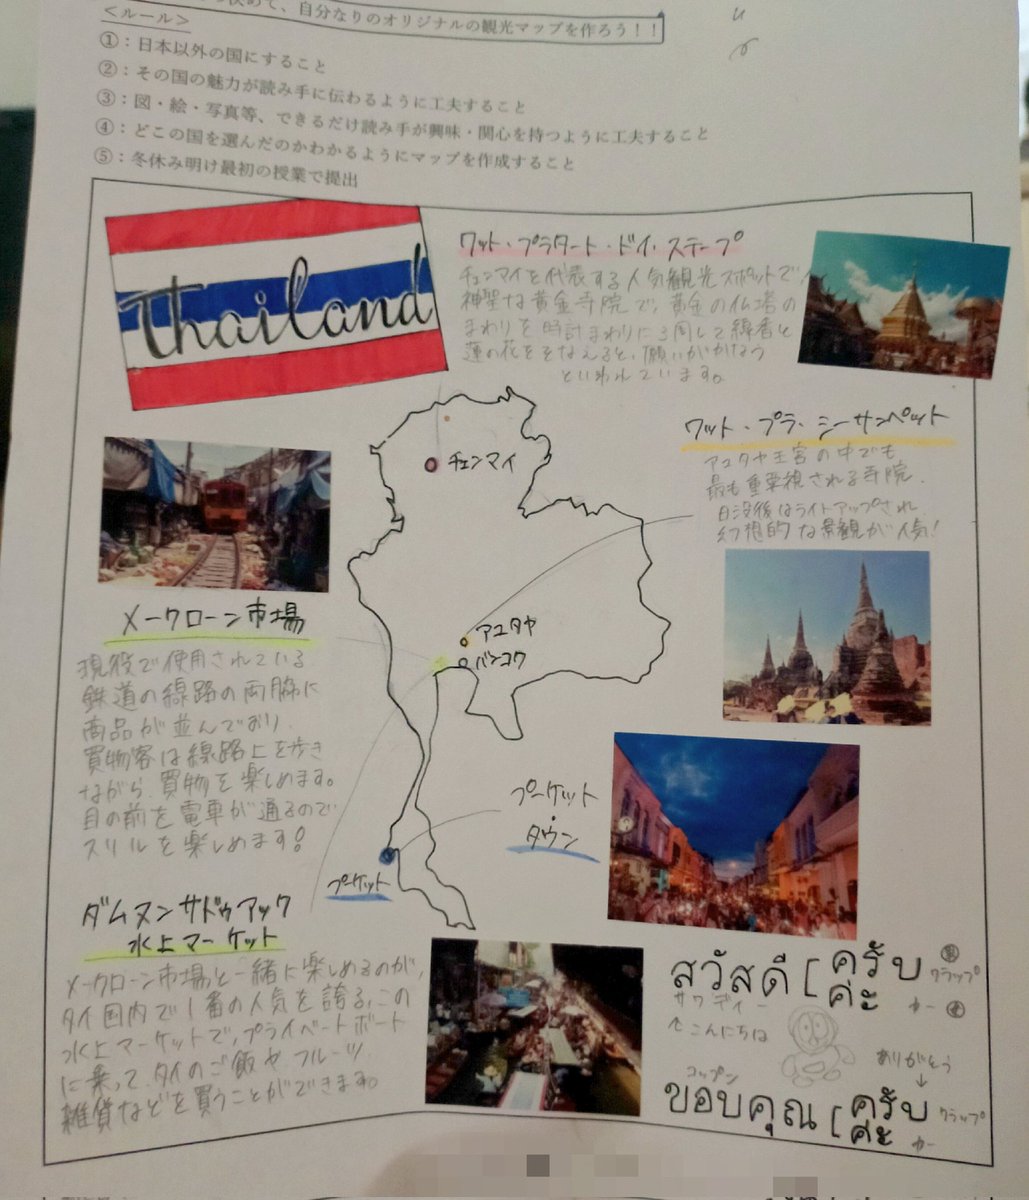 決めて、自分なりのオリジナルの観光マップを作ろう！！
＜ルール＞
①：日本以外の国にすること
②：その国の魅力が読み手に伝わるように工夫すること
③：図・絵・写真等、できるだけ読み手が興味・関心を持つように工夫すること
④：どこの国を選んだのかわかるようにマップを作成すること
⑤：冬休み明け最初の授業で提出
Thailand
ワット・プラタート・ドイ・ステープ
チェンマイを代表する人気観光スポットで、
神聖な黄金寺院で、黄金の仏塔の
まわりを時計まわりに3周して線香と
蓮の花をそなえると、願いがかなう
といわれています。
ワット・プラ・シーサンペット
アユタヤ王宮の中でも
最も重要視される寺院。
日没後はライトアップされ
幻想的な景観が人気！
チェンマイ
アユタヤ
バンコク
メークローン市場
現役で使用されている
鉄道の線路の両脇に
商品が並んでおり、
買物客は線路上を歩き
ながら、買物を楽しめます。
目の前を電車が通るので
スリルを楽しめます！
プーケット
・
タウン
プーケット
ダムヌンサドゥアック
水上マーケット
メークローン市場と一緒に楽しめるのが、
タイ国内で1番の人気を誇る、この
水上マーケットで、プライベートボート
に乗って、タイのご飯やフルーツ、
雑貨などを買うことができます。
สวัสดี [ ครับ 男 クラップ
ค่ะ カー 女
サワディー
こんにちは
ありがとう
コップン
ขอบคุณ [ ครับ クラップ
ค่ะ カー